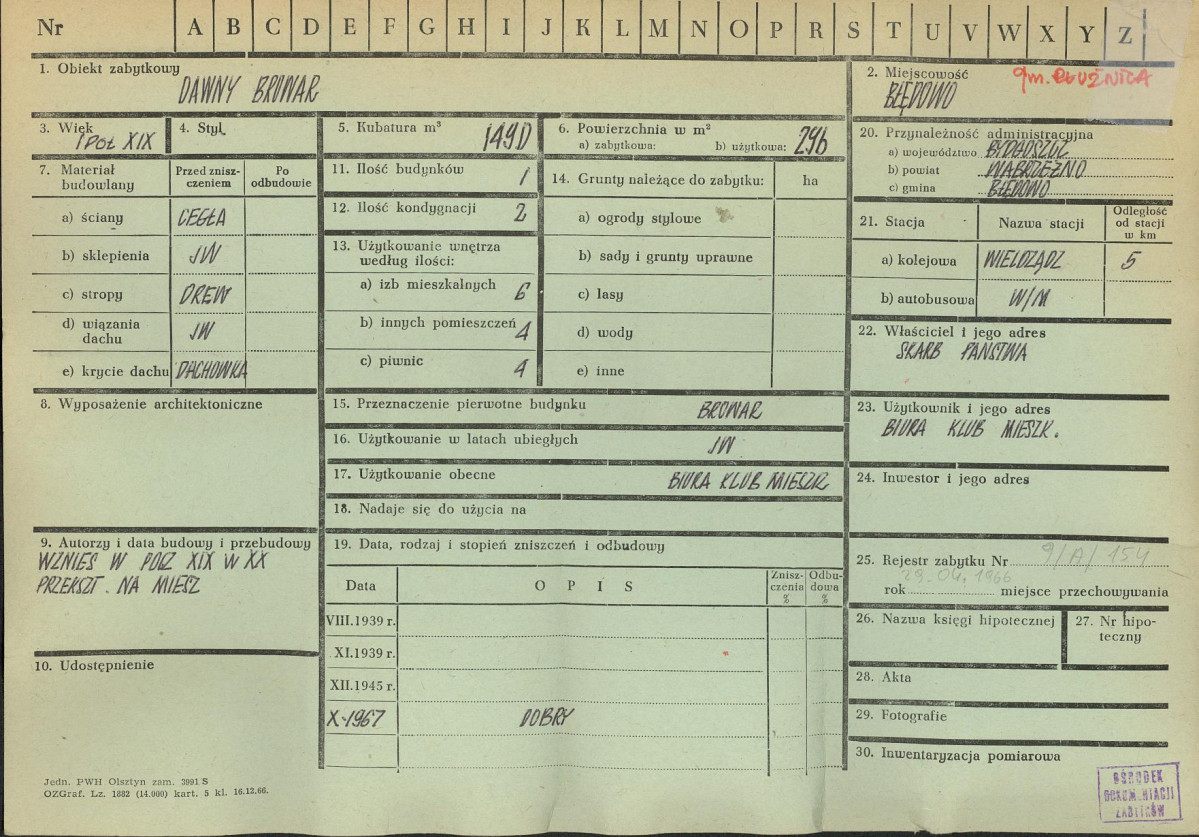 Nr A B C D E F G H I J K L M N O P R S T U V W X Y Z
1. Obiekt zabytkowy
DAWNY BROWAR
2. Miejscowość
gm. PŁUŻNICA
BŁĘDOWO
3. Wiek
I POŁ XIX
4. Styl
5. Kubatura m³
1490
6. Powierzchnia w m²
a) zabytkowa: b) użytkowa: 296
20. Przynależność administracyjna
a) województwo BYDGOSZCZ
b) powiat WĄBRZEŹNO
c) gmina BŁĘDOWO
7. Materiał budowlany
Przed zniszczeniem
Po odbudowie
a) ściany CEGŁA
b) sklepienia JW
c) stropy DREW
d) wiązania dachu JW
e) krycie dachu DACHOWKA
11. Ilość budynków 1
12. Ilość kondygnacji 2
13. Użytkowanie wnętrza według ilości:
a) izb mieszkalnych 6
b) innych pomieszczeń 4
c) piwnic 4
14. Grunty należące do zabytku: ha
a) ogrody stylowe
b) sady i grunty uprawne
c) lasy
d) wody
e) inne
21. Stacja Nazwa stacji Odległość od stacji w km
a) kolejowa WIELDZĄDZ 5
b) autobusowa W/M
22. Właściciel i jego adres
SKARB PAŃSTWA
8. Wyposażenie architektoniczne
15. Przeznaczenie pierwotne budynku BROWAR
16. Użytkowanie w latach ubiegłych JW
17. Użytkowanie obecne BIURA KLUB MIESZK
18. Nadaje się do użycia na
23. Użytkownik i jego adres
BIURA KLUB MIESZK.
24. Inwestor i jego adres
9. Autorzy i data budowy i przebudowy
WZNIES W POCZ XIX W XX
PRZEKSZT. NA MIESZ
10. Udostępnienie
19. Data, rodzaj i stopień zniszczeń i odbudowy
Data OPIS Zniszczenia % Odbudowa %
VIII.1939 r.
XI.1939 r.
XII.1945 r.
X-1967 DOBRY
25. Rejestr zabytku Nr 9/A/154
29.04.1966
rok miejsce przechowywania
26. Nazwa księgi hipotecznej
27. Nr hipoteczny
28. Akta
29. Fotografie
30. Inwentaryzacja pomiarowa
Jedn. PWH Olsztyn zam. 3991 S
OZGraf. Lz. 1882 (14.000) kart. 5 kl. 16.12.66.
OŚRODEK
DOKUMENTACJI
ZABYTKÓW